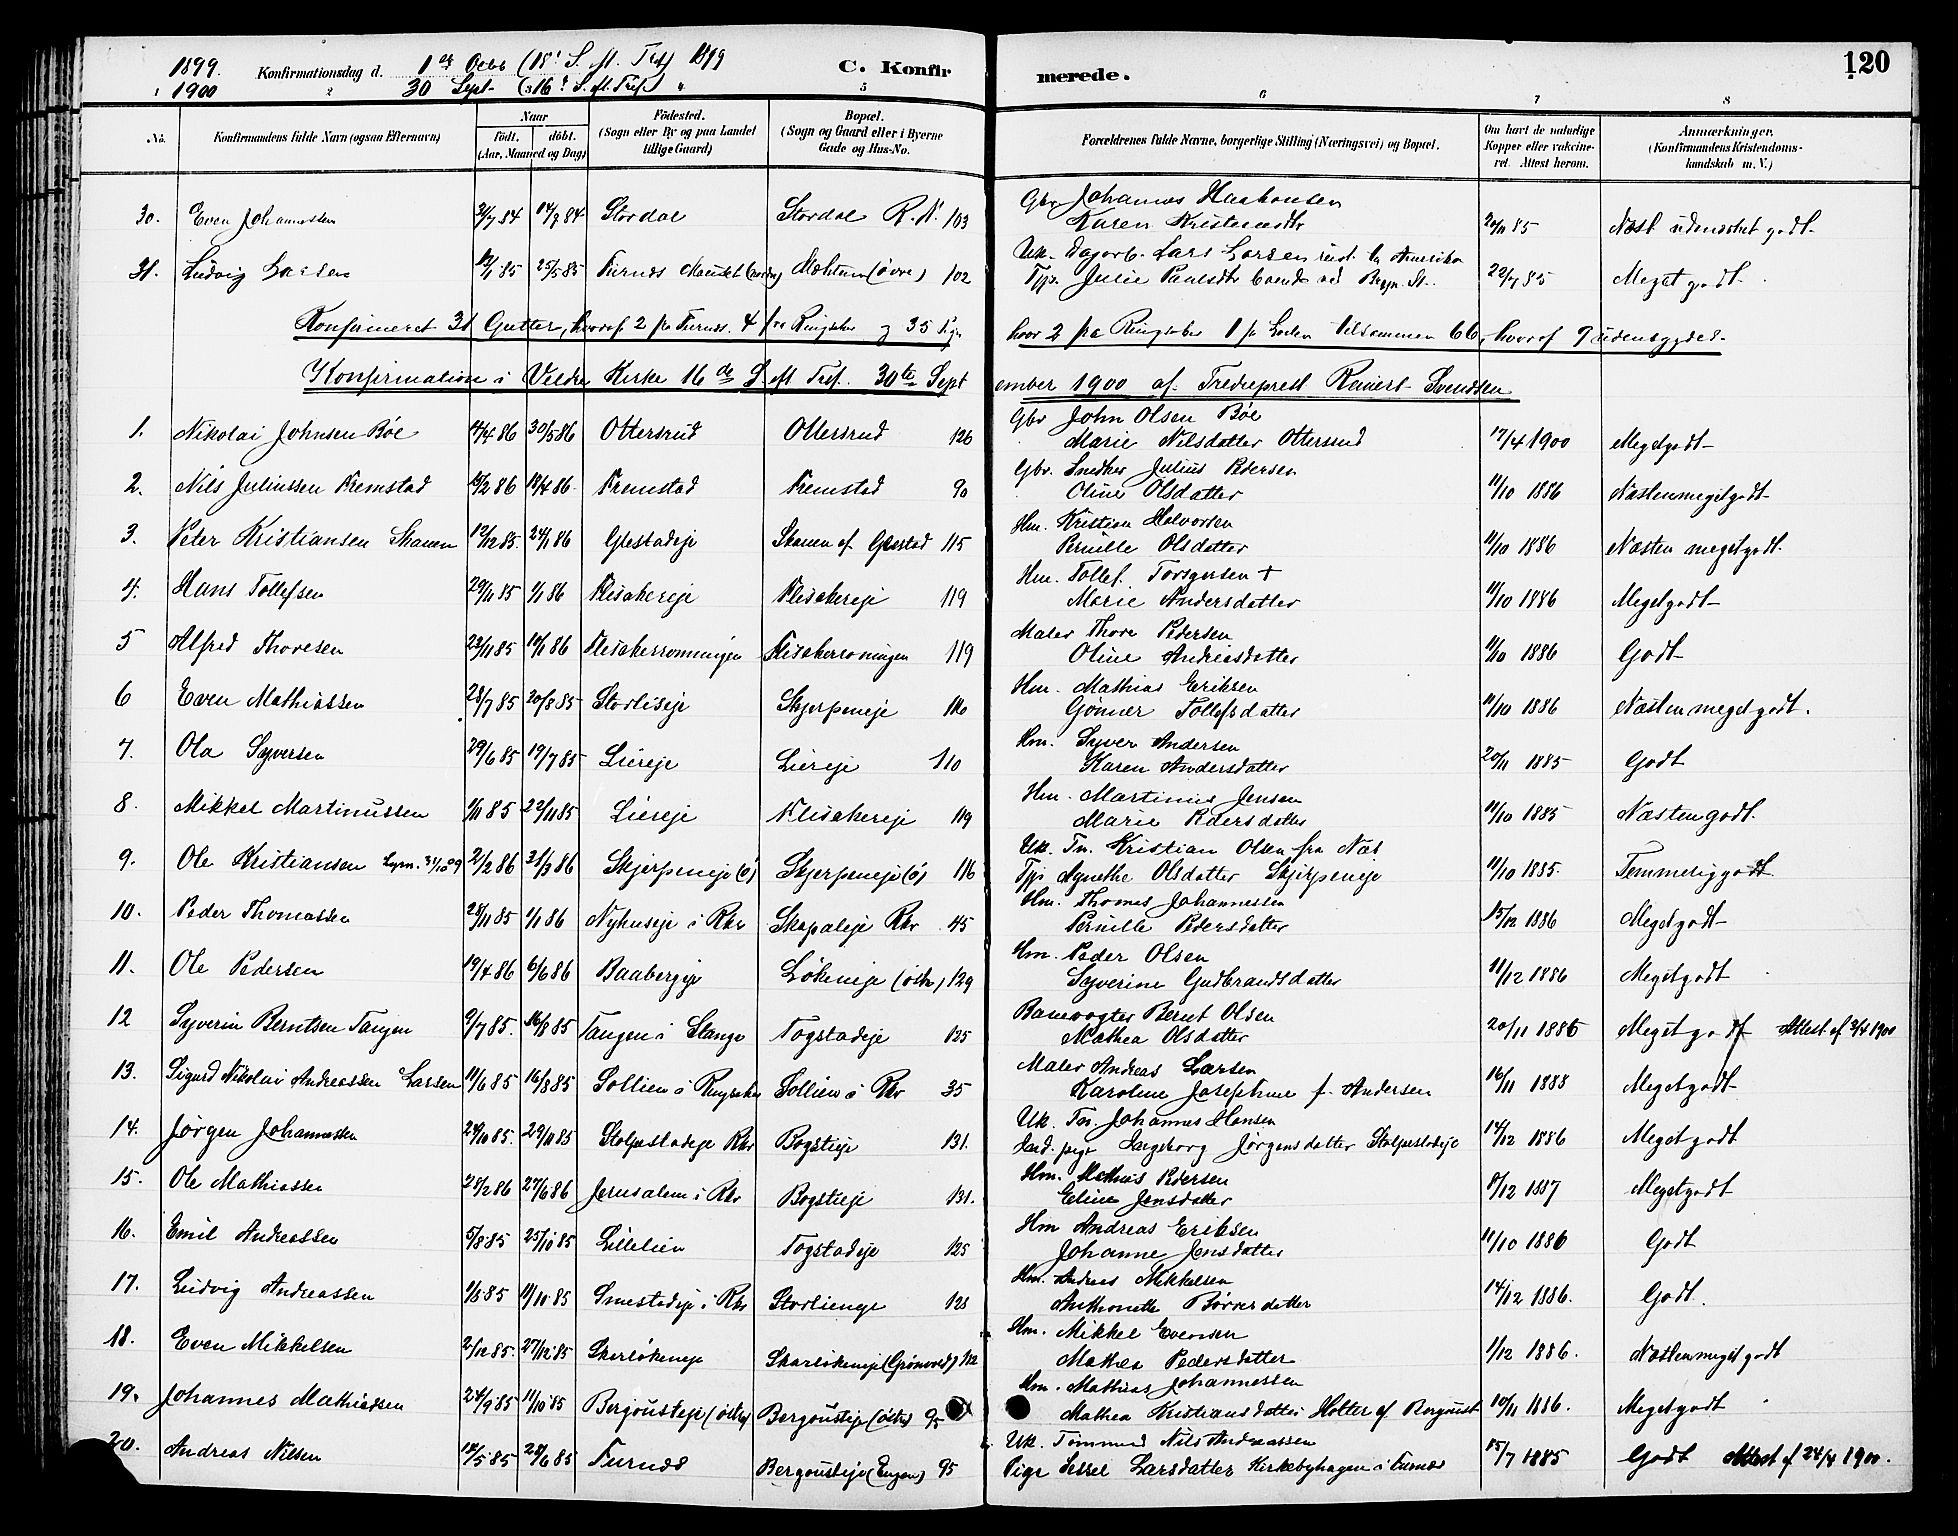 1899. Konfirmationsdag d. 1 Octb (18 S. eft. Tref) 1899 C. Konfirmerede. 120
1900 30 Sept (16 S. eft. Tref.)
2 5 6 7 8
No. Konfirmandens fulde Navn (ogsaa Efternavn) Naar født. døbt. (Aar, Maaned og Dag) Fødested. (Sogn eller By og paa Landet tillige Gaard) Bopæl. (Sogn og Gaard eller i Byerne Gade og Hus-No. Forældrenes fulde Navne, borgerlige Stilling (Næringsvei) og Bopæl. Om havt de naturlige Kopper eller vakcineret. Attest herom. Anmærkninger. (Konfirmandens Kristendomskundskab m. V.)
30. Even Johannessen 84 84 Stordal Stordal R. N. 103 Gbr Johannes Haakonsen
Karen 85 godt
31. Ludvig Larsen 85 25/5 85 Furnes Mæhlum (øvre) 102 Uk. Dagarb. Lars Larsen Amerika
Tjp. Julie Paulsdtr 85 Meget godt
Konfirmeret 31 Gutter, hvoraf 2 fra Furnes. 4 fra Ringsaker og 35 Piger
hvor 2 fra Ringsaker 1 fra Tilsammen 66, hvoraf 7 udensogndes.
Konfirmation i Veldre Kirke 16de S. eft Tref. 30te September 1900 af Svendsen
1. Nikolai Johnsen Bøe 4/4 86 30/5 86 Ottersrud Ottersrud 126 Gbr John Olsen Bøe
Marie Nilsdatter Ottersrud 17/4 1900 Megetgodt
2. Nils Juliussen Fremstad 86 86 Fremstad Fremstad 90 Gbr. Snedker Julius Pedersen
Oline Olsdatter 11/10 1886 Næstenmegetgodt
3. Peter Kristiansen Skauen 12/12 85. 24/1 86 Glestadeje Skauen af Glestad 115 Hm. Kristian Halvorsen
Pernille Olsdatter 11/10 1886 Næsten megetgodt.
4. Hans Tollefsen 29/11 85 1/1 86 Flisakereje Flisakereje 119 Hm. Tollef Torgersen +
Marie Andersdatter 11/10 1886 Megetgodt
5 Alfred Thoresen 22/11 85 86 Flisakerromningen Flisakerroningen 119 Maler Thore Pedersen
Oline Andreasdatter 11/10 1886 Godt
6 Even Mathiassen 28/7 85 20/8 85 Storliseje Skjerpeneje 116 Hm. Mathias Eriksen
Gønner Tollefsdatter 11/10 1886 Næsten megetgodt.
7. Ola Syversen 29/6 85 19/7 85 Liereje Liereje 110 Hm. Syver Andersen
Karen Andersdatter 20/11 1885 Godt
8. Mikkel Martinussen 1/11 85 22/11 85 Liereje Flisakereje 119 Hm. Martinius Jensen
Marie Pedersdatter 11/10 1885 Næstengodt.
9. Ole Kristiansen 2/2 86 31/3 86 Skjerpeneje (ø) Skjerpeneje (ø) 116 Uk. Tn. Kristian Olsen fra Næs
Tjp. Agnethe Olsdatter Skjerpeneje 11/10 1885. Temmeliggodt
10. Peder Thomassen 28/11 85 1/1 86 Nyhuseje i Rkr Skapaleje Rkr 45 Hm. Thomas Johannessen
Pernille Pedersdatter 15/12 1886 Megetgodt
11. Ole Pedersen 19/4 86 6/6 86 Baabergeje Løkeneje (østre) 129 Hm. Peder Olsen
Syverine Gudbrandsdatter 11/12 1886 Megetgodt
12 Syverin Berntsen Tangen 9/7 85. 16/8 85 Tangen i Stange Togstadeje 125 Banevogter Bernt Olsen
Mathea Olsdatter 20/11 1886 Megetgodt Attest af 3/4 1900
13. Sigurd Nikolai Andreassen Larsen 11/6 85 16/8 85 Sollien i Ringsaker Sollien i Rkr 35 Maler Andreas Larsen
Karoline Josephine f. Andersen 16/11 1888 Megetgodt
14. Jørgen Johannessen 24/10 85. 29/11 85 Stolpestadeje Rkr Bogstieje 131. Uk. Tn. Johannes Hansen
Ingeborg Jørgensdatter Stolpestadeje 14/12 1886 Megetgodt
15. Ole Mathiassen 28/2 86 27/6 86 Jerusalem i Rkr Bogstieje 131. Hm. Mathias Pedersen
Eline Jensdatter 8/12 1887 Megetgodt
16. Emil Andreassen 5/8 85 25/10 85 Lillelien Togstadeje 125 Hm Andreas Eriksen
Johanne Jensdatter 11/10 1886 Godt
17. Ludvig Andreassen 85 11/10 85 Smestadeje i Rkr Storlienge 128 Hm. Andreas Mikkelsen
Anthonette Børresdatter 14/12 1886. Godt.
18. Even Mikkelsen 2/12 85. 27/12 85 Skarløkeneje Skarløkeneje (Grønvold) 112 Hm. Mikkel Evensen
Mathea Pedersdatter 1/12 1886. Næstenmegetgodt
19. Johannes Mathiassen 24/9 85 11/10 85 Bergousteje (østre) Bergousteje (østre) 95 Hm. Mathias Johannessen
Mathea Kristiansdatter Holter af Bergoust 10/11 1886. Megetgodt
20. Andreas Nilsen 14/5 85 28/6 85 Furnes Bergousteje (Engen) 95 Uk. Tømmermd Nils Andreassen
Pige Sessel Larsdatter Kirkebyhagen i Furnes 15/7 1885 Godt Attest af 24/4 1900.